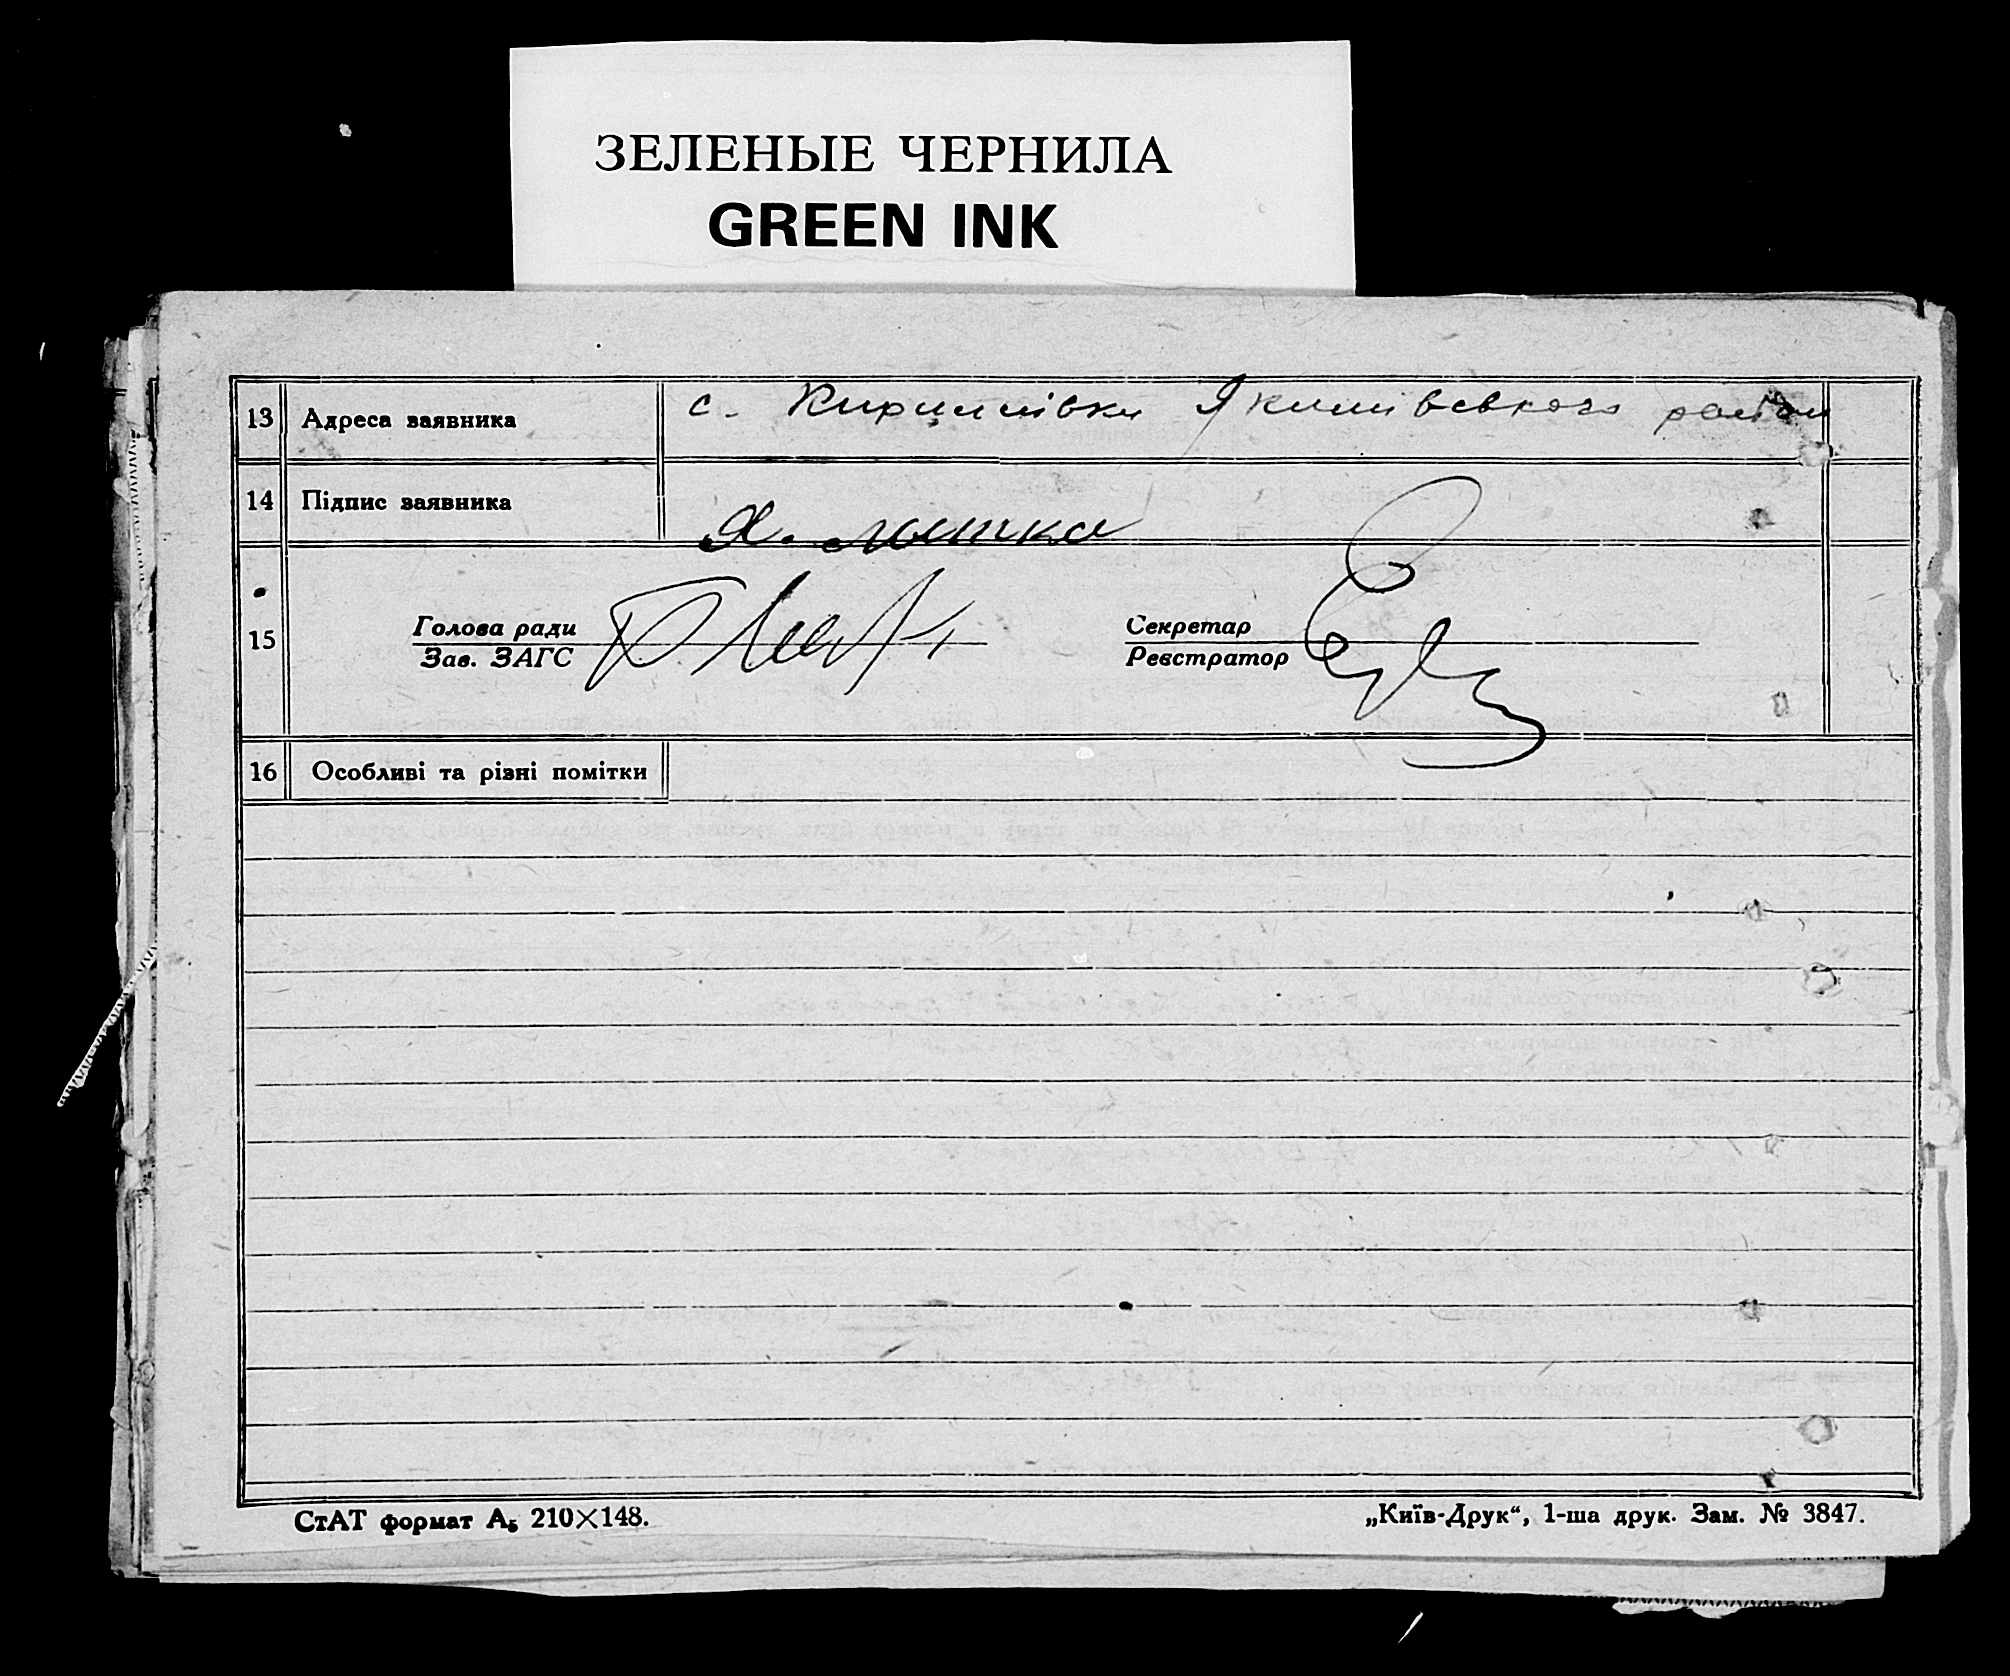 ЗЕЛЕНЫЕ ЧЕРНИЛА
GREEN INK
13 Адреса заявника с. Кирилівка Якимівського району
14 Підпис заявника
15 Голова ради Секретар
Зав. ЗАГС Реєстратор
16 Особливі та різні помітки
СтАТ формат А5 210×148.
„Київ-Друк“, 1-ша друк. Зам. № 3847.